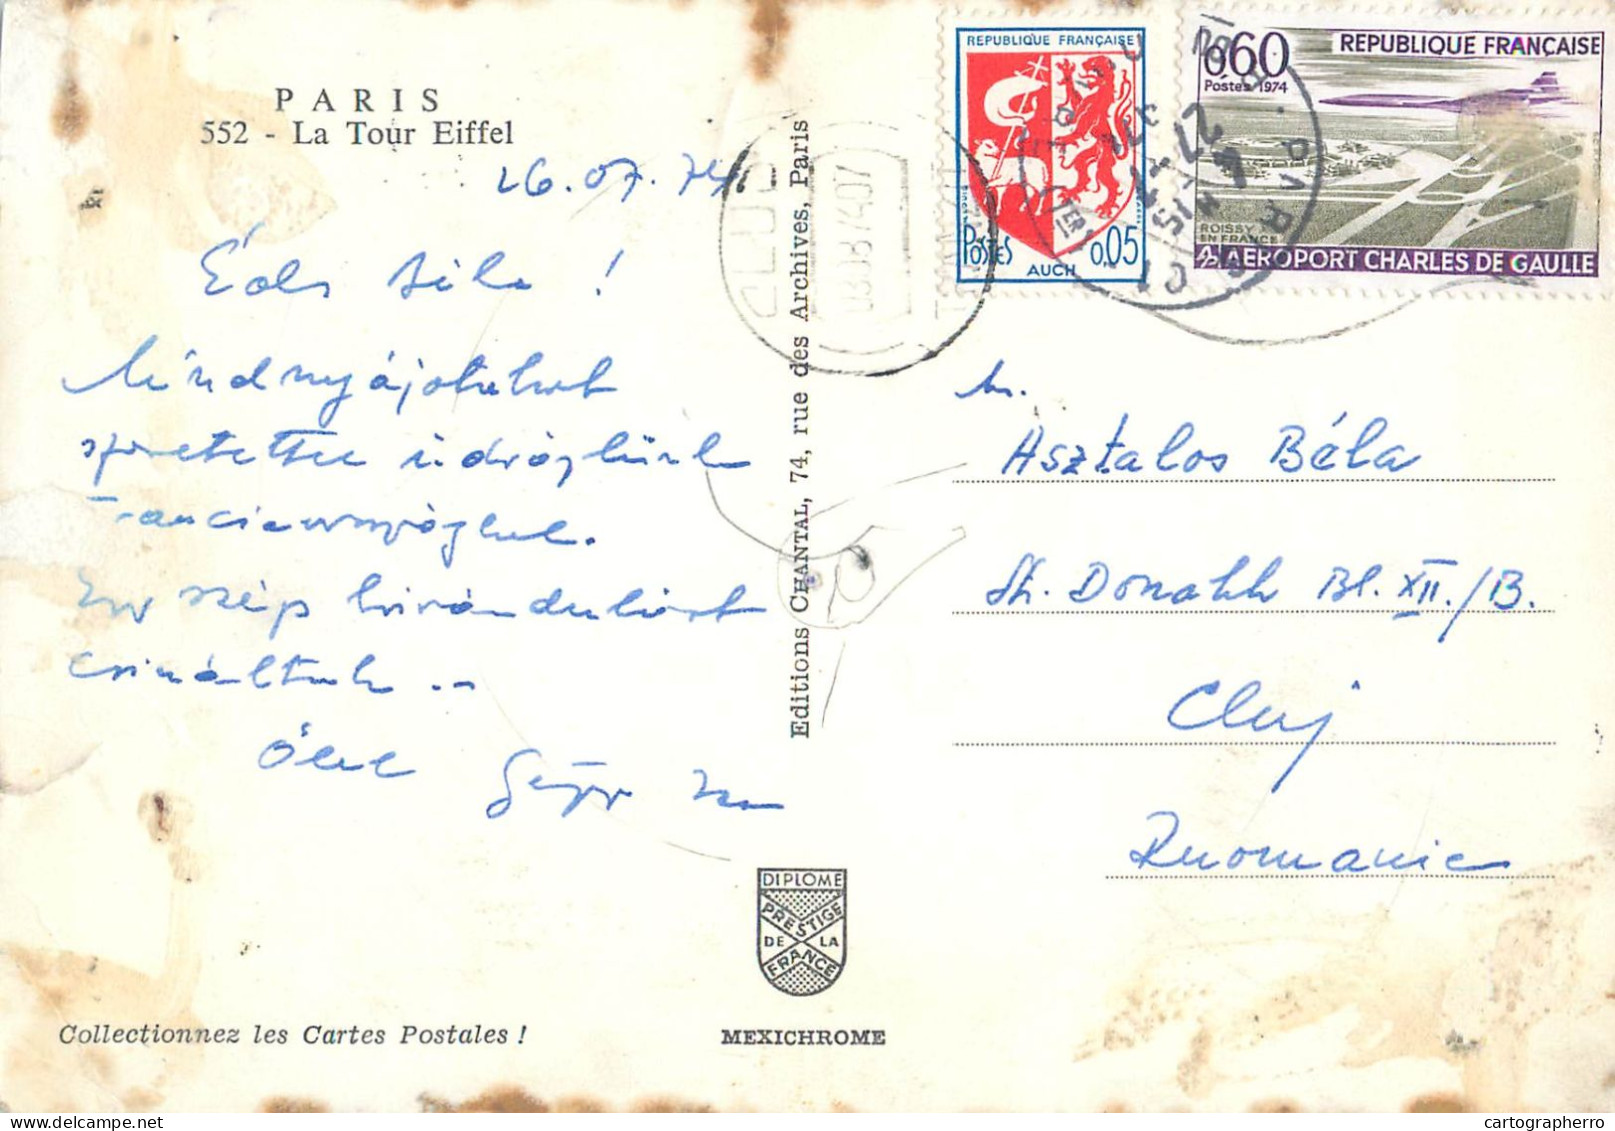 PARIS
552 - La Tour Eiffel
26.07.74
Édes Béla!
Mindnyájatokat
szeretettel üdvözlünk
Franciaországból.
szép kirándulást
csináltunk ..
Ölel
Editions CHANTAL, 74, rue des Archives, Paris
CLUJ
03.08.74.07
REPUBLIQUE FRANÇAISE
POSTES 0,05
AUCH
0,60 REPUBLIQUE FRANÇAISE
Postes 1974
ROISSY
EN FRANCE
AEROPORT CHARLES DE GAULLE
PARIS
Asztalos Béla
St. Donath Bl. XII./B.
Cluj
Roumanie
DIPLOME
PRESTIGE
DE LA
FRANCE
Collectionnez les Cartes Postales !
MEXICHROME
cartographerro